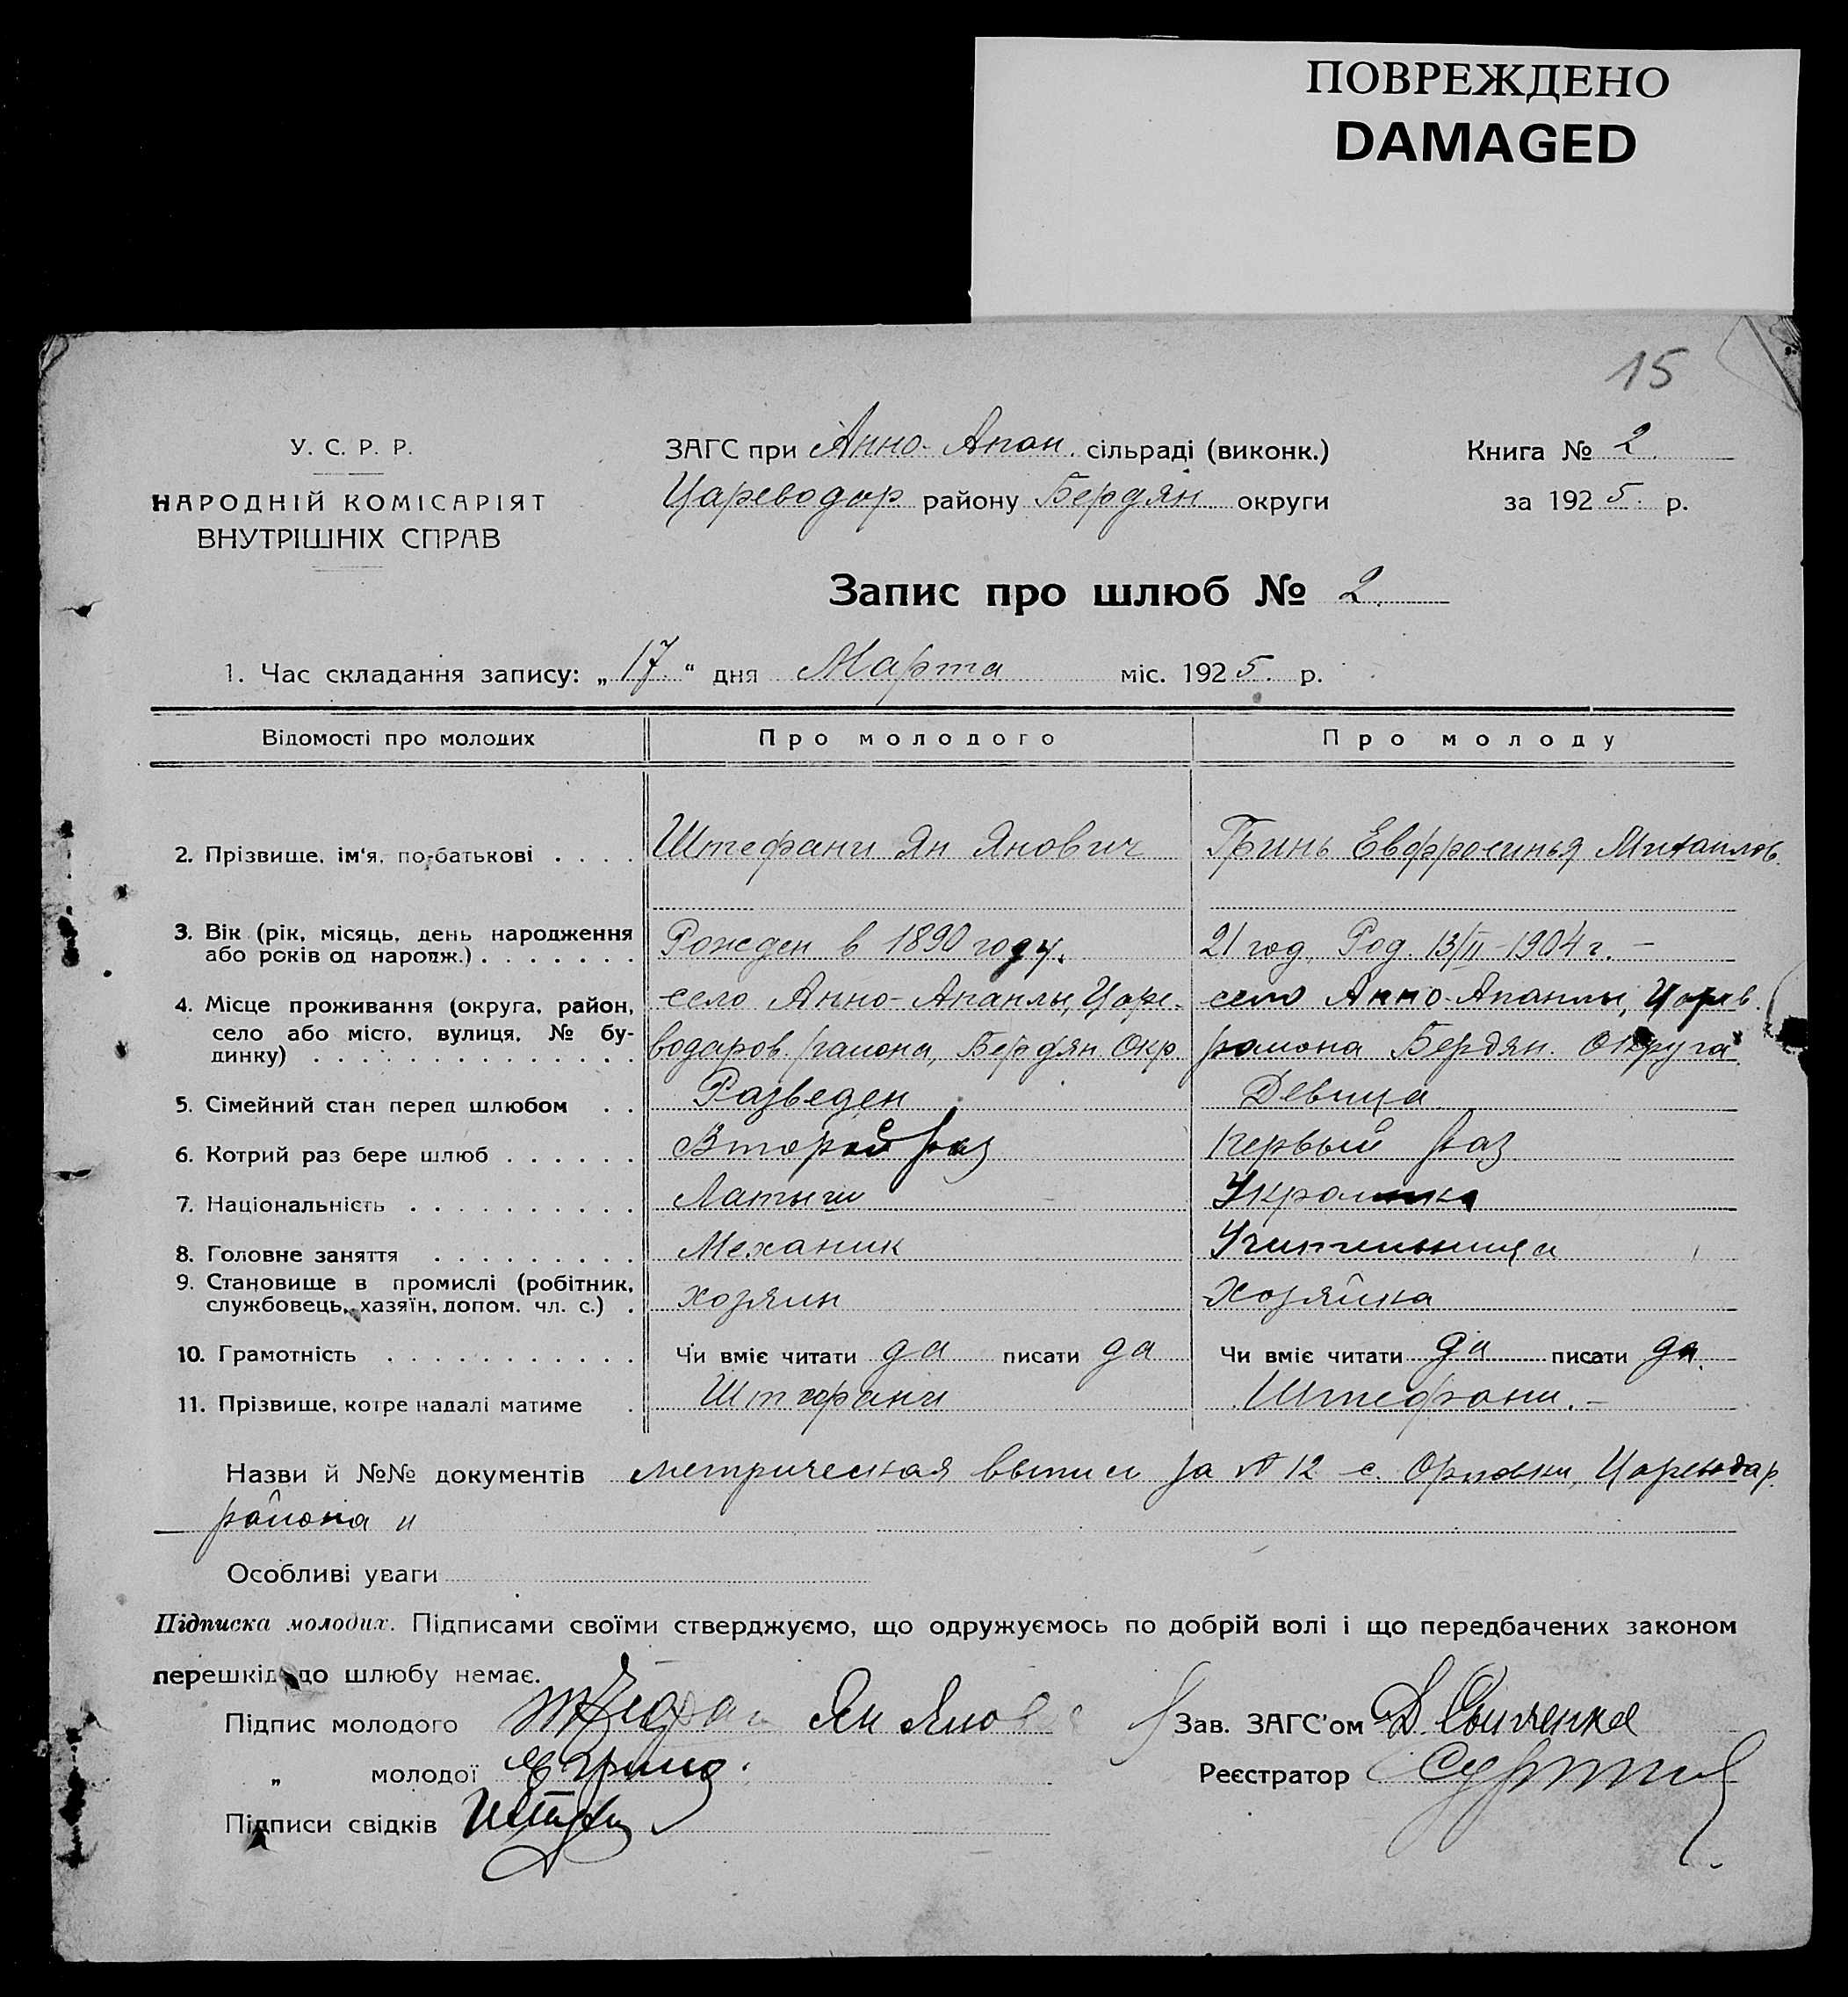 ПОВРЕЖДЕНО
DAMAGED
15
У. С. Р. Р.
НАРОДНІЙ КОМІСАРІЯТ
ВНУТРІШНІХ СПРАВ
ЗАГС при Анно-Апан. сільраді (виконк.)
Цареводар району Бердян округи
Книга № 2.
за 1925. р.
Запис про шлюб № 2.
1. Час складання запису: „17.“ дня Марта міс. 1925. р.
Відомості про молодих Про молодого Про молоду
2. Прізвище, ім'я, по-батькові . . . . Штефани Ян Янович Гринь Евфросинья Михайлов.
3. Вік (рік, місяць, день народження
або років од народж.) . . . . . . . Рожден в 1890 году. 21 год. Род. 13/II-1904 г. –
4. Місце проживання (округа, район, село Анно-Апанлы, Царе- село Анно-Апанлы, Царев.
село або місто, вулиця, № бу-
динку) . . . . . . . . . . . . . водаров. района, Бердян. Окр. района Бердян. Округа.
5. Сімейний стан перед шлюбом . . Разведен Девица
6. Котрий раз бере шлюб . . . . . . Второй раз Первый раз
7. Національність . . . . . . . . . . Латыш Украинка
8. Головне заняття . . . . . . . . . Механик Учительница
9. Становище в промислі (робітник,
службовець, хазяїн, допом. чл. с.) . хозяин Хозяйка
10. Грамотність . . . . . . . . . . . Чи вміє читати да писати да Чи вміє читати да писати да.
11. Прізвище, котре надалі матиме . Штефани Штефани. –
Назви й №№ документів метрическая выпись за № 12 с. Орловки, Цареводар.
района и
Особливі уваги
Підписка молодих. Підписами своїми стверджуємо, що одружуємось по добрій волі і що передбачених законом
перешкід до шлюбу немає.
Підпис молодого Ян Яно Зав. ЗАГС'ом Д.
„ молодої Е Гринь. Реєстратор
Підписи свідків